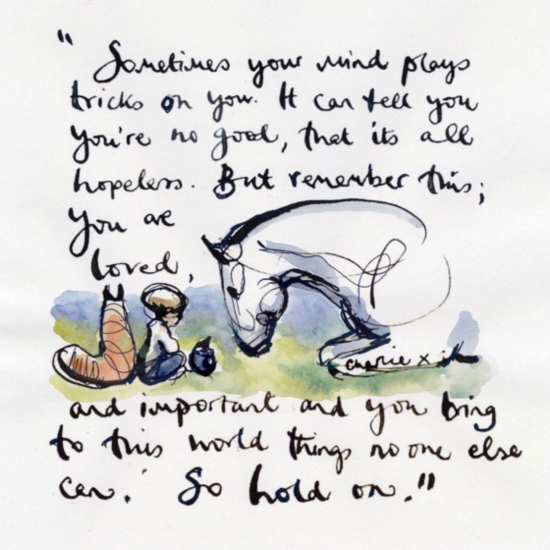 " Sometimes your mind plays
tricks on you. It can tell you
you're no good, that its all
hopeless. But remember this;
You are
loved,
charlie x
and important and you bring
to this world things no one else
can. So hold on."